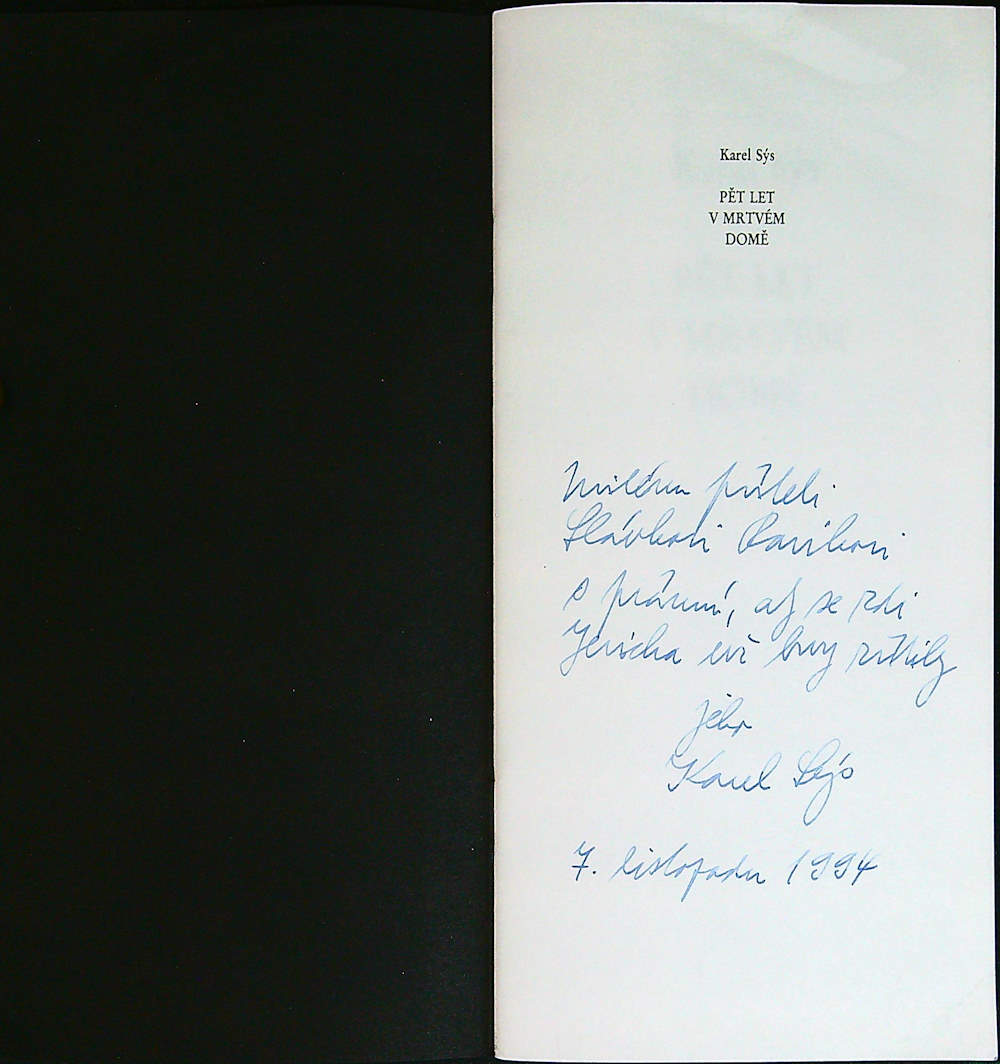 Karel Sýs
PĚT LET
V MRTVÉM
DOMĚ
Milému příteli
Slávkovi
s přáním, ať se zdi
Jericha už brzy zřítily
jeho
Karel Sýs
7. listopadu 1994